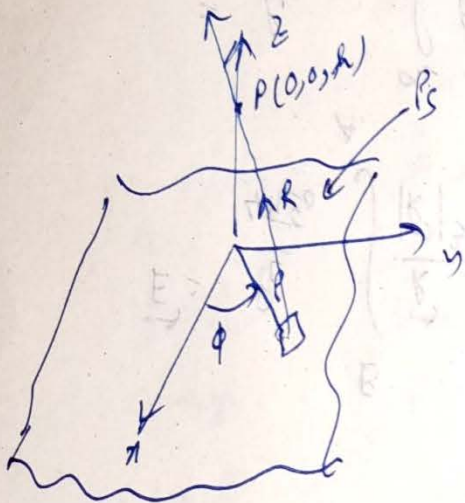 z
P(0,0,h)
ρs
R
y
ρ
φ
x